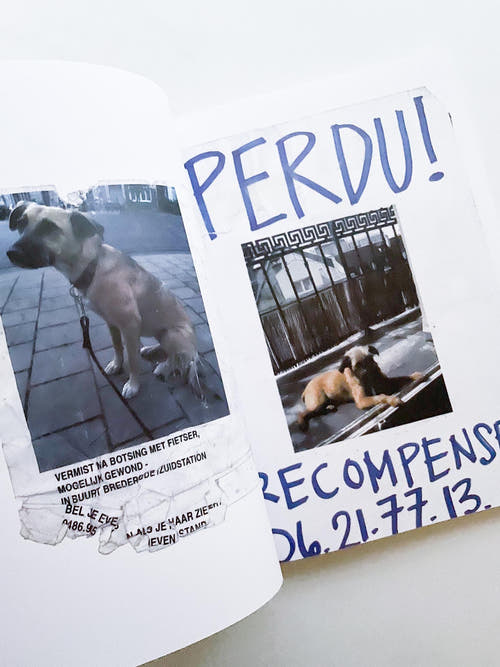 VERMIST NA BOTSING MET FIETSER,
MOGELIJK GEWOND -
IN BUURT BREDERODE/ZUIDSTATION
BEL JE EVE
N ALS JE HAAR ZIET?
0486.95
EVEN STAND
PERDU!
RECOMPENSE
06.21.77.13.